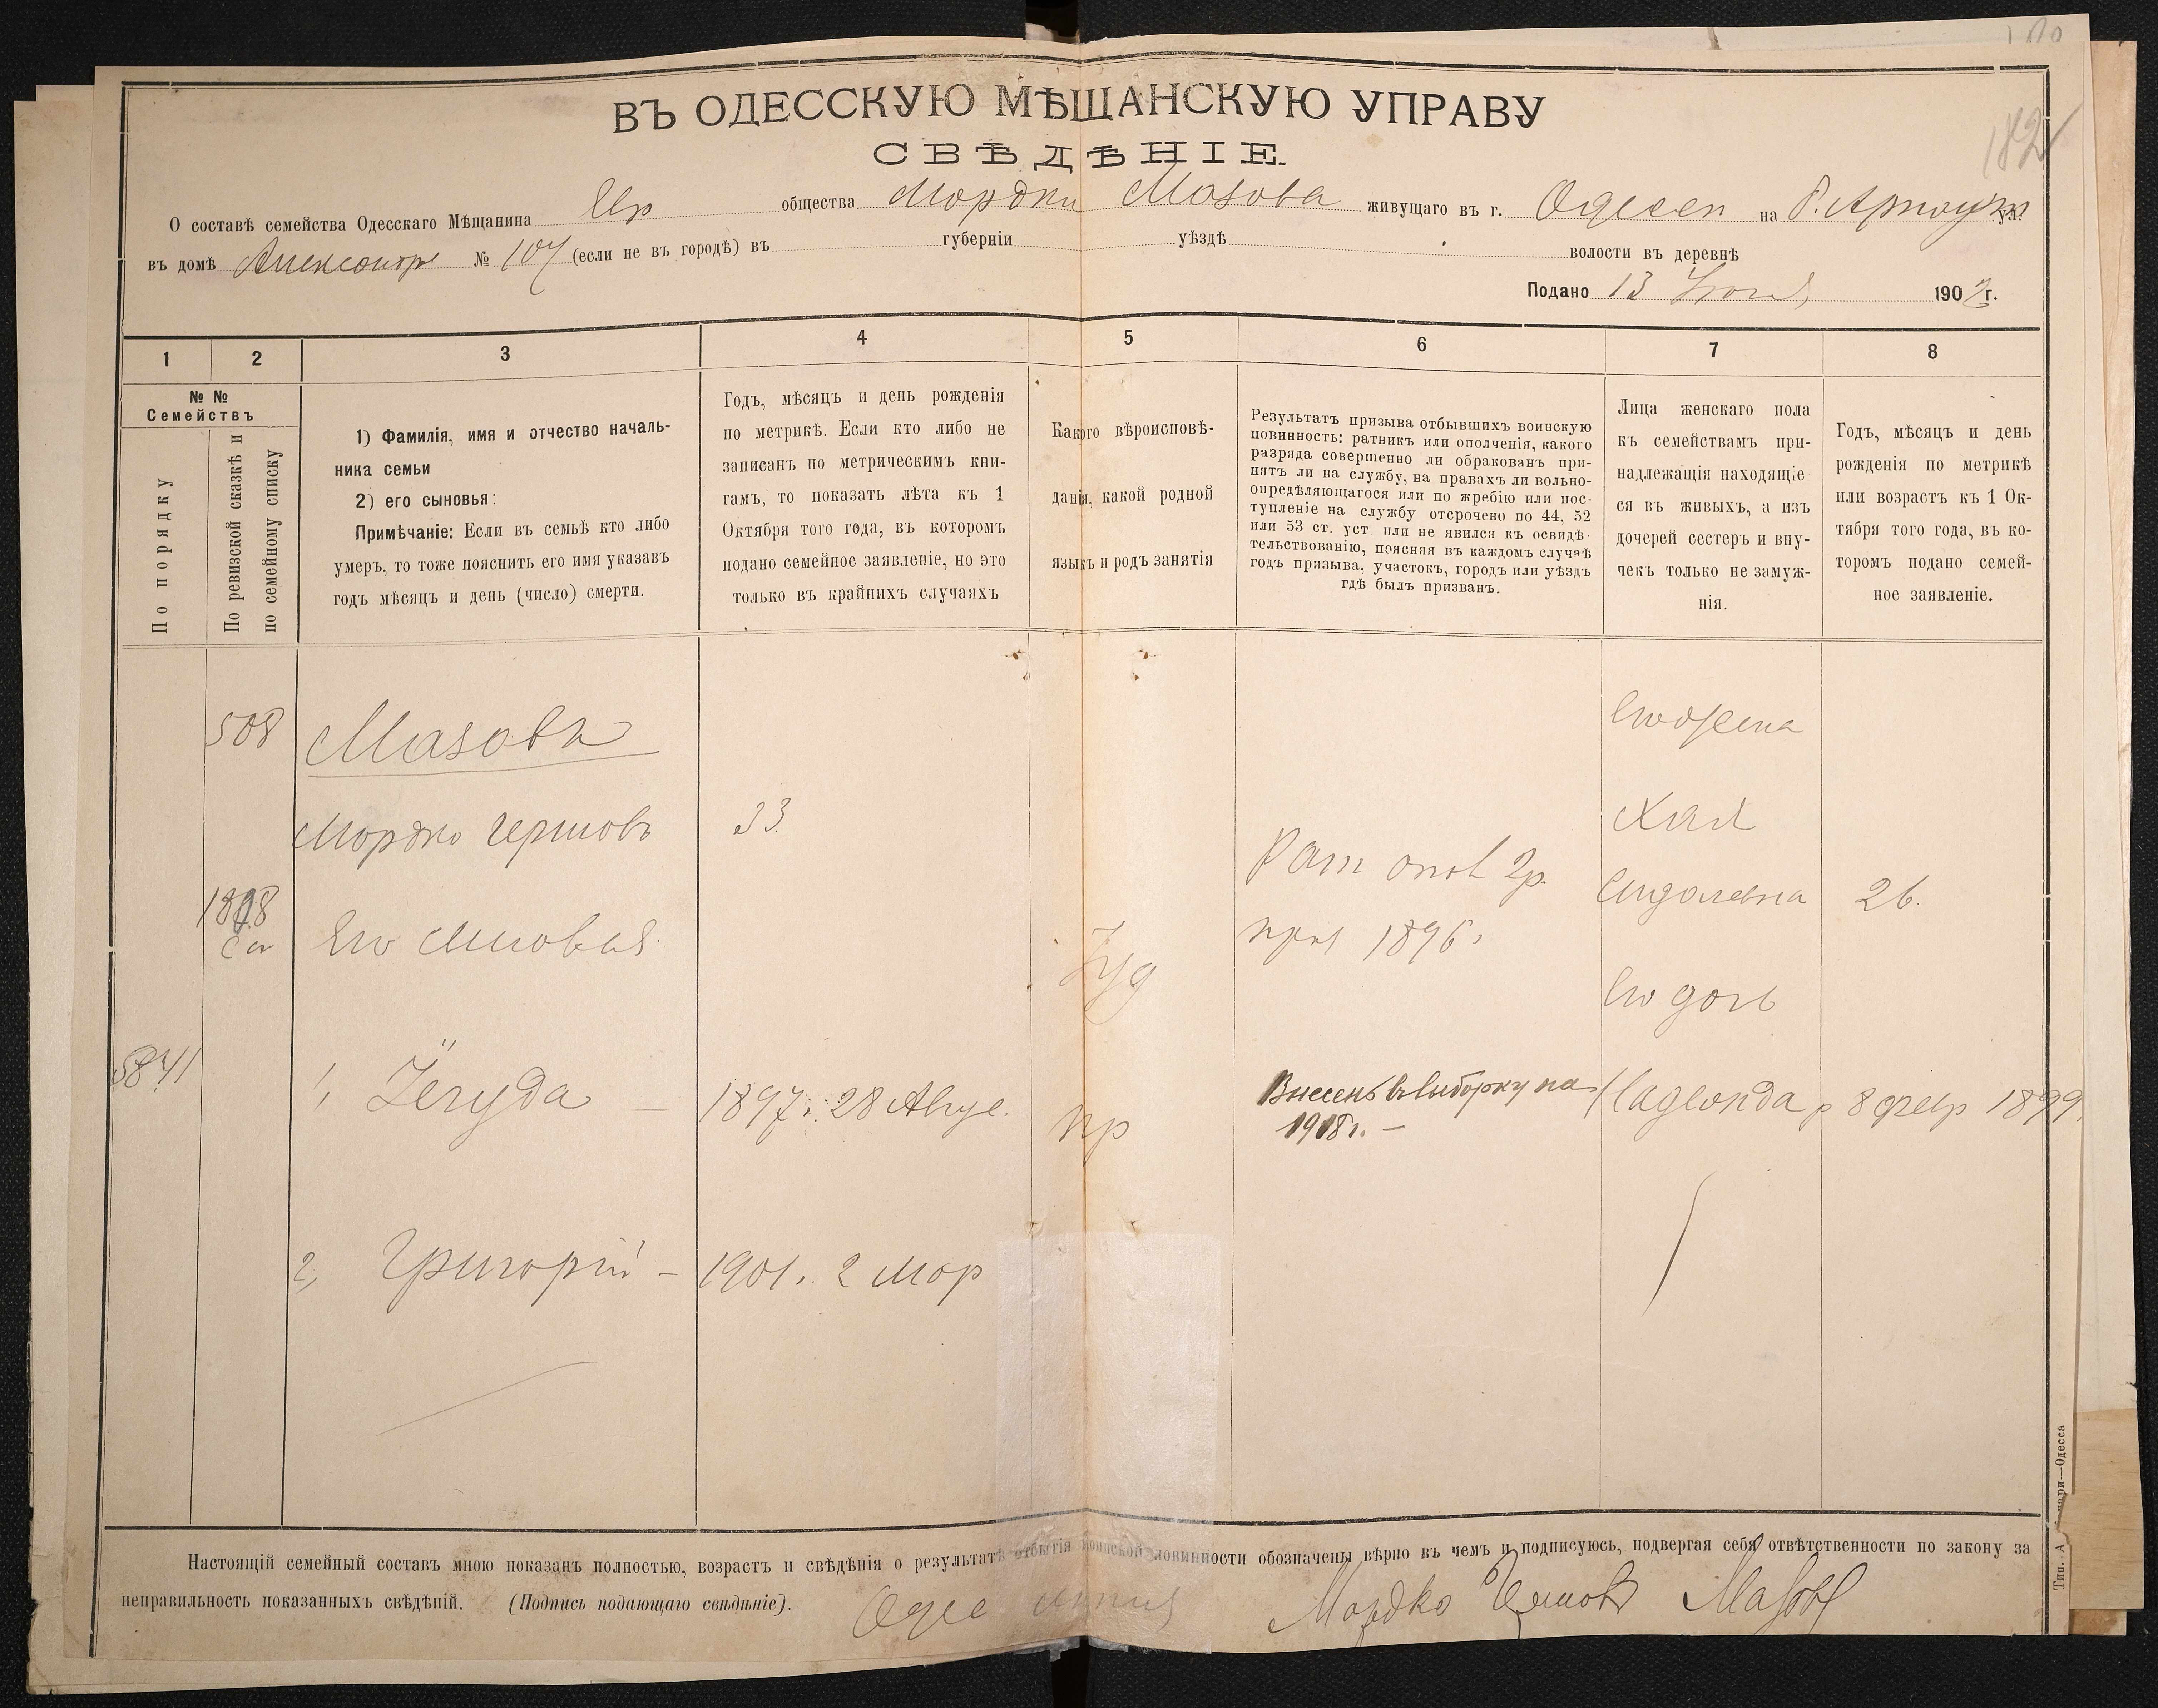 182
ВЪ ОДЕССКУЮ МѢЩАНСКУЮ УПРАВУ
СВѢДѢНІЕ.
О составѣ семейства Одесскаго Мѣщанина Евр общества Мордки Мазова живущаго въ г. Одессѣ на Б. Арноутс ул.
въ домѣ № 107 (если не въ городѣ) въ губерніи уѣздѣ волости въ деревнѣ
Подано 13 1902 г.
1 2 3 4 5 6 7 8
№ №
Семействъ
По порядку
По ревизской сказкѣ и
по семейному списку
1) Фамилія, имя и отчество началь-
ника семьи
2) его сыновья:
Примѣчаніе: Если въ семьѣ кто либо
умеръ, то тоже пояснить его имя указавъ
годъ мѣсяцъ и день (число) смерти.
Годъ, мѣсяцъ и день рожденія
по метрикѣ. Если кто либо не
записанъ по метрическимъ кни-
гамъ, то показать лѣта къ 1
Октября того года, въ которомъ
подано семейное заявленіе, но это
только въ крайнихъ случаяхъ
Какого вѣроисповѣ-
данія, какой родной
языкъ и родъ занятія
Результатъ призыва отбывшихъ воинскую
повинность: ратникъ или ополченія, какого
разряда совершенно ли обракованъ при-
нятъ ли на службу, на правахъ ли вольно-
опредѣляющагося или по жребію или пос-
тупленіе на службу отсрочено по 44, 52
или 53 ст. уст или не явился къ освидѣ-
тельствованію, поясняя въ каждомъ случаѣ
годъ призыва, участокъ, городъ или уѣздъ
гдѣ былъ призванъ.
Лица женскаго пола
къ семействамъ при-
надлежащія находящіе
ся въ живыхъ, а изъ
дочерей сестеръ и вну-
чекъ только не замуж-
нія.
Годъ, мѣсяцъ и день
рожденія по метрикѣ
или возрастъ къ 1 Ок-
тября того года, въ ко-
торомъ подано семей-
ное заявленіе.
508 Мазовъ Его жена
Мордко Гершовъ 33 Хая
Рат опол 2р. Сидолевна 26.
1898 Его сыновья приз 1896 г
Іуд Его дочь
5841 1, Іегуда - 1897 г. 28 Авгус. пр Внесенъ въ выборку на 1918 г. - р 8 февр 1899
2, Григорій - 1901 г. 2 Мар
Настоящій семейный составъ мною показанъ полностью, возрастъ и свѣдѣнія о результатѣ отбытія воинской повинности обозначены вѣрно въ чемъ и подписуюсь, подвергая себя отвѣтственности по закону за
неправильность показанныхъ свѣдѣній. (Подпись подающаго свѣдѣніе). Мордко Гершовъ Мазовъ